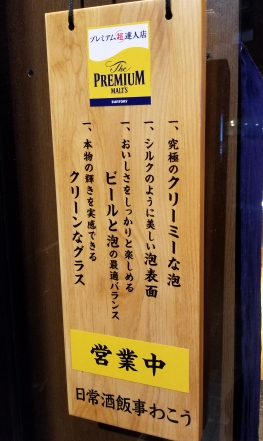 プレミアム超達人店
The
PREMIUM
MALT'S
SUNTORY
一、究極のクリーミーな泡
一、シルクのように美しい泡表面
一、おいしさをしっかりと楽しめる
ビールと泡の最適バランス
一、本物の輝きを実感できる
クリーンなグラス
営業中
日常酒飯事わこう